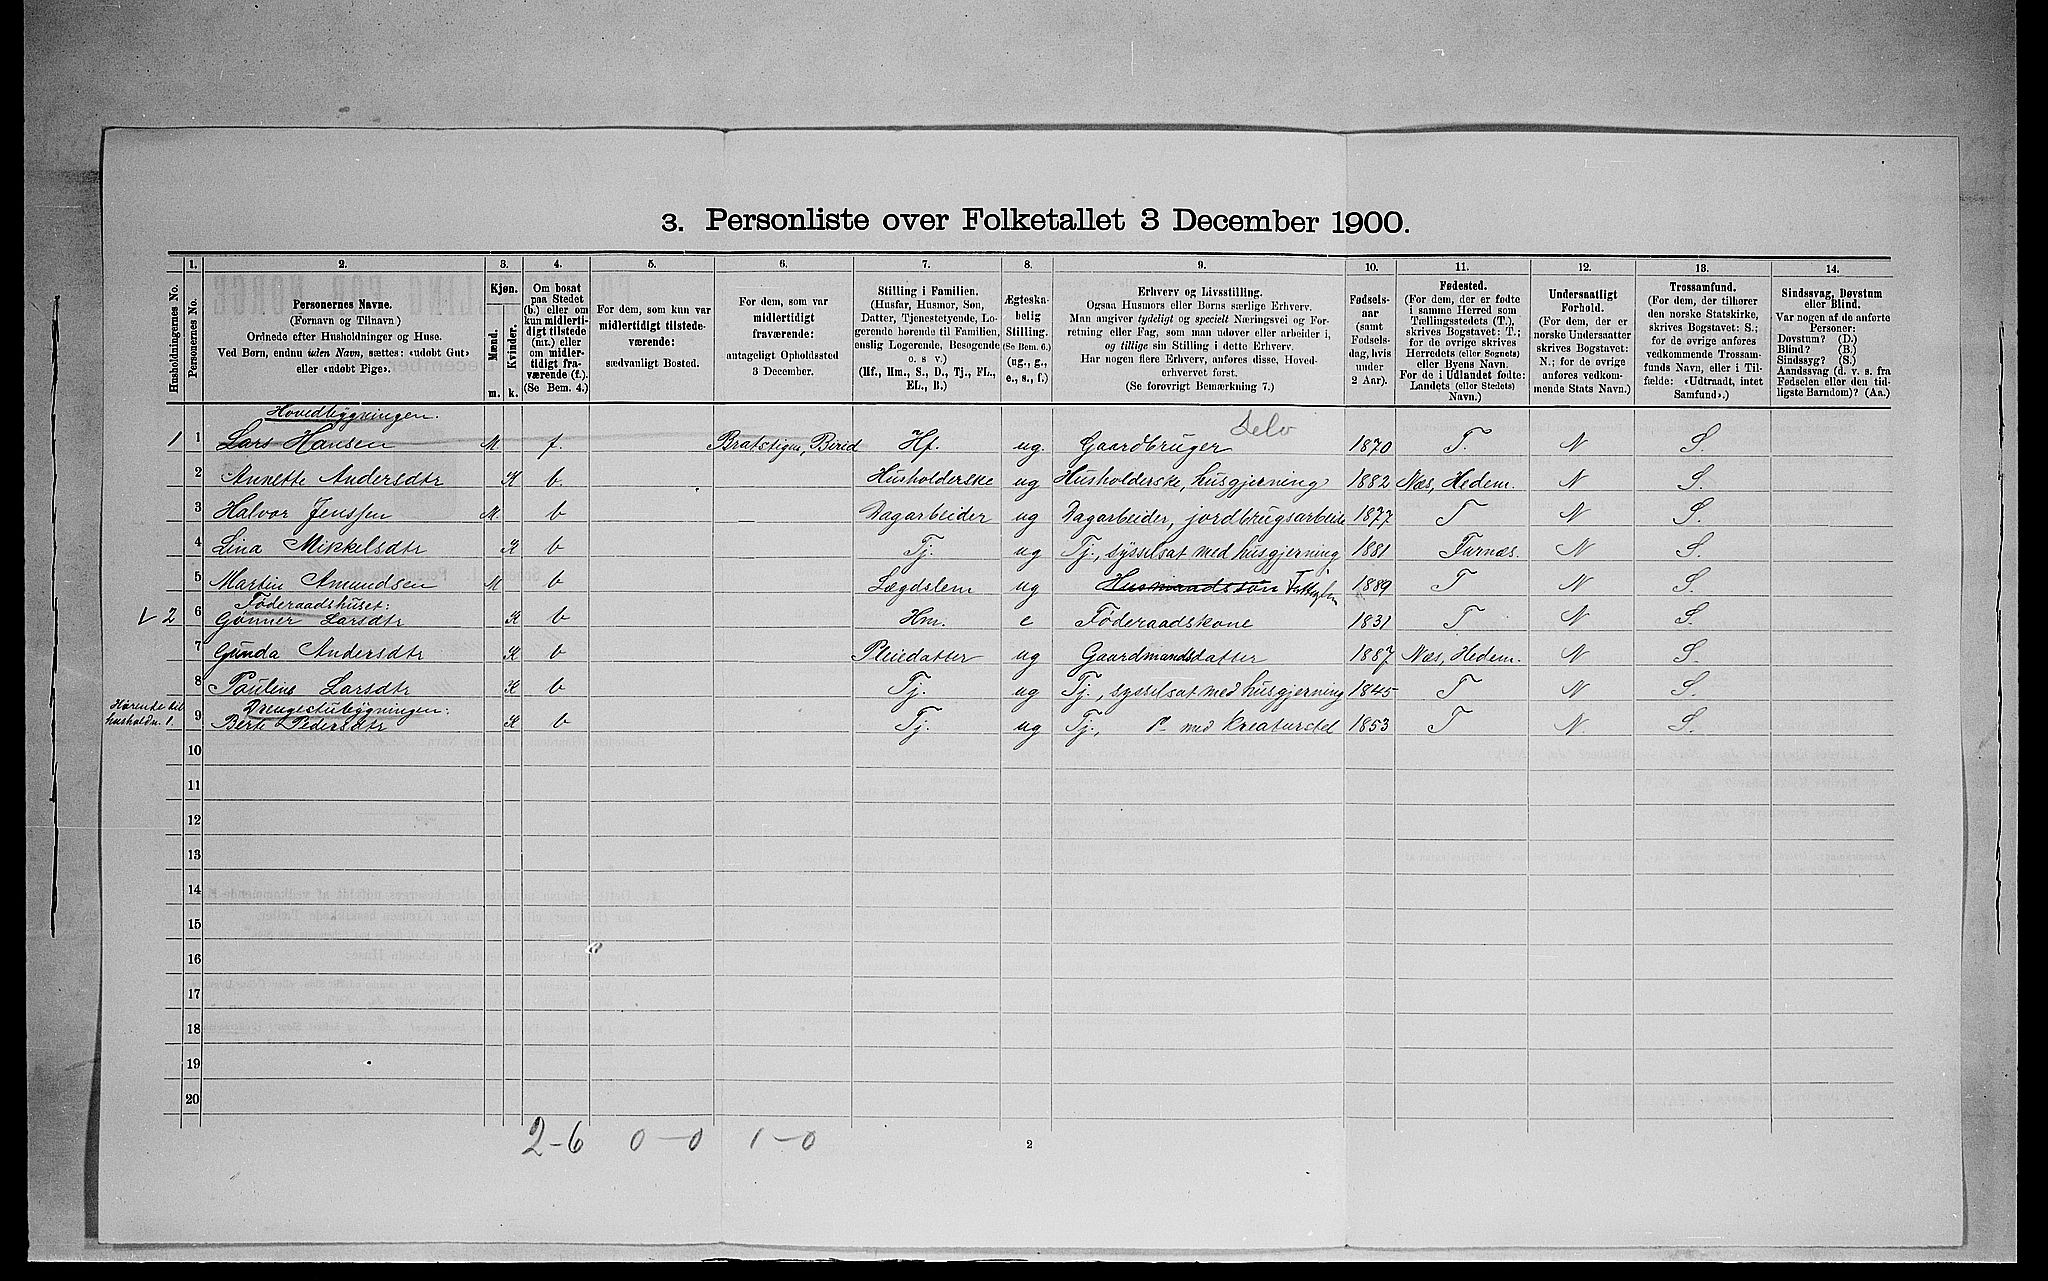 3. Personliste over Folketallet 3 December 1900.
Husholdningernes No.
1.
Personernes No.
2.
Personernes Navne.
(Fornavn og Tilnavn)
Ordnede efter Husholdninger og Huse.
Ved Børn, endnu uden Navn, sættes: «udobt Gut»
eller «udobt Pige».
3.
Kjøn.
Mænd.
Kvinder.
m. k.
4.
Om bosat
paa Stedet
(b.) eller om
kun midlerti-
digt tilstede
(mt.) eller
om midler-
tidigt fra-
værende (f.)
(Se Bem. 4.)
5.
For dem, som kun var
midlertidigt tilstede-
værende:
sædvanligt Bosted.
6.
For dem, som var
midlertidigt
fraværende:
antageligt Opholdssted
3 December.
7.
Stilling i Familien.
(Husfar, Husmor, Søn,
Datter, Tjenestetyende, Lo-
gerende hørende til Familien,
enslig Logerende, Besøgende
o. s v.)
(Hf., Hm., S., D., Tj., FL.,
EL., B.)
8.
Ægteska-
belig
Stilling.
(Se Bem. 6.)
(ug., g.,
e., s., f.)
9.
Erhverv og Livsstilling.
Ogsaa Husmors eller Børns særlige Erhverv.
Man angiver tydeligt og specielt Næringsvei og For-
retning eller Fag, som man udøver eller arbeider i,
og tillige sin Stilling i dette Erhverv.
Har nogen flere Erhverv, anføres disse, Hoved-
erhvervet først.
(Se forøvrigt Bemærkning 7.)
10.
Fødsels-
aar
(samt
Fødsels-
dag, hvis
under
2 Aar).
11.
Fødested.
(For dem, der er fødte
i samme Herred som
Tællingsstedets (T.),
skrives Bogstavet: T.;
for de øvrige skrives
Herredets (eller Sognets)
eller Byens Navn.
For de i Udlandet fødte:
Landets (eller Stedets)
Navn.)
12.
Undersaatligt
Forhold.
(For dem, der er
norske Undersaatter
skrives Bogstavet:
N.; for de øvrige
anføres vedkom-
mende Stats Navn.)
13.
Trossamfund.
(For dem, der tilhører
den norske Statskirke,
skrives Bogstavet: S.;
for de øvrige anføres
vedkommende Trossam-
funds Navn, eller i Til-
fælde: «Udtraadt, intet
Samfund».)
14.
Sindssvag, Døvstum
eller Blind.
Var nogen af de anførte
Personer:
Døvstum? (D.)
Blind? (B.)
Sindssyg? (S.)
Aandssvag (d. v. s. fra
Fødselen eller den tid-
ligste Barndom)? (Aa.)
Hovedbygningen.
1 1 Lars Hansen M. f. Bratstigen, Birid Hf. ug. Gaardbruger Selv 1870 T. N S.
2 Annette Andersdtr K b. Husholderske ug Husholderske, husgjerning 1882 Næs, Hedem. N S.
3 Halvor Jenssen M. b Dagarbeider ug Dagarbeider, jordbrugsarbeide 1877 T N S.
4 Lina Mikkelsdtr K b Tj. ug Tj., sysselsat med husgjerning 1881 Furnæs. N S.
5 Martin Amundsen M b Lægdslem ug Husmandssøn Fattiglem 1889 T N S.
Föderaadshuset:
V 2 6 Gönner Larsdtr K b Hm. e Föderaadskone 1831 T N S.
7 Gunda Andersdtr K b Pleiedatter ug Gaardmandsdatter 1887 Næs, Hedem. N S.
8 Pauline Larsdtr K b Tj. ug Tj., sysselsat med husgjerning 1845 T N S.
Drengestubygningen:
Hörende til
husholdn. 1. 9 Berte Pedersdtr K b Tj. ug Tj., " med kreaturstel 1853 T N. S.
10
11
12
13
14
15
16
17
18
19
20
2-6 0-0 1-0
2